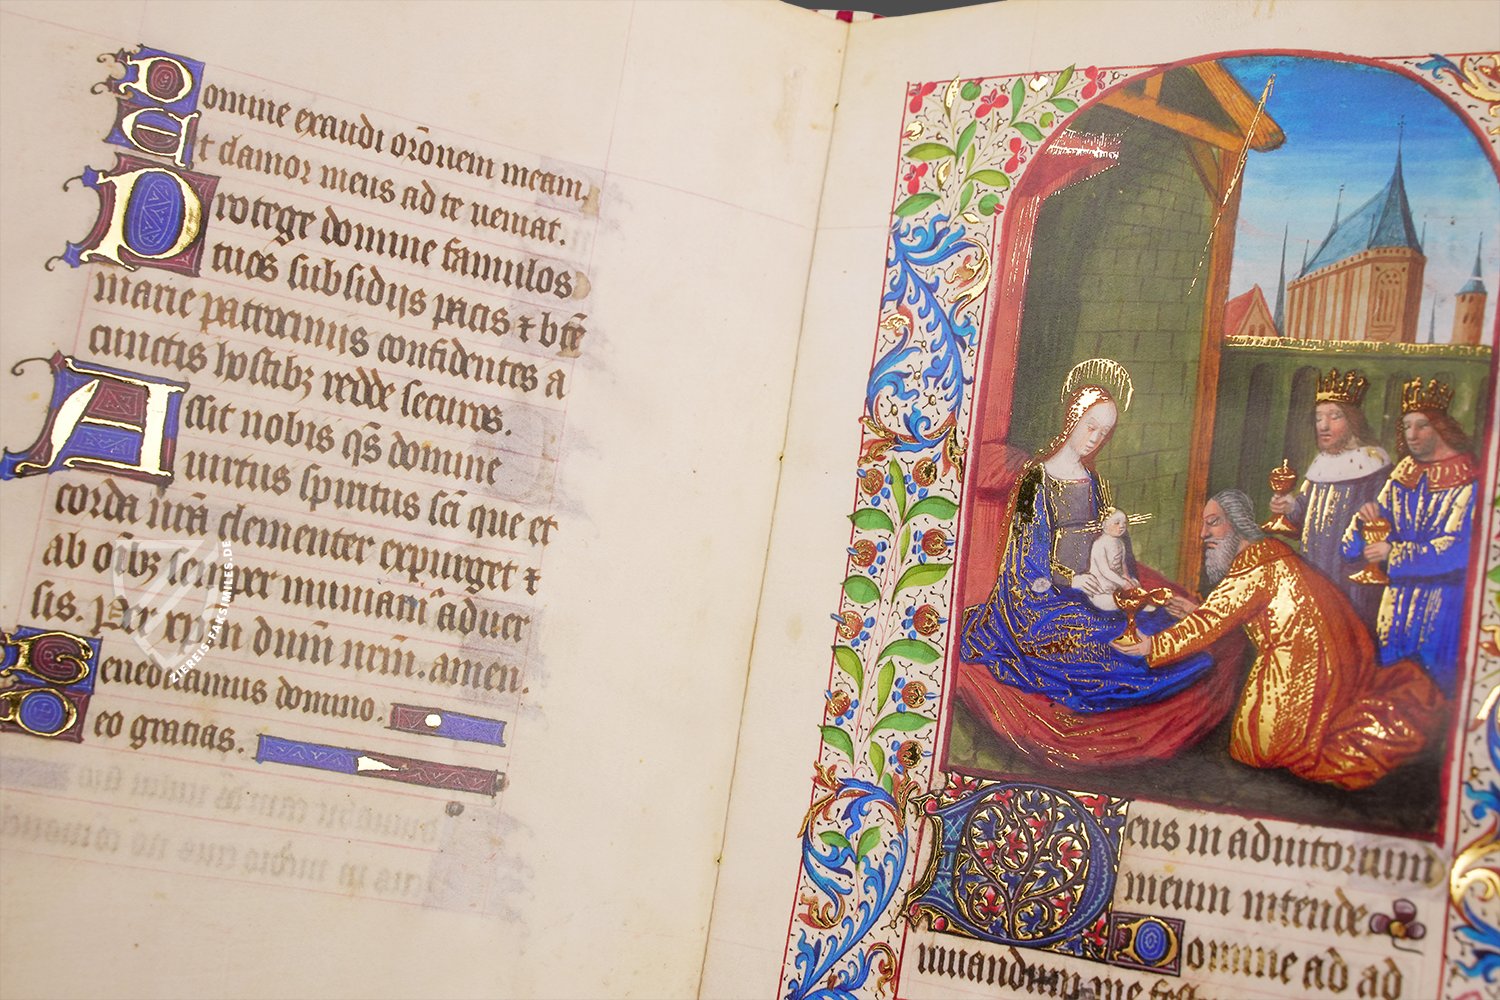 Domine exaudi orōnem meam.
Et clamor meus ad te veniat.
Protege domine famulos
tuos subsidijs pacis ⁊ btē
marie patrocinijs confidentes a
cunctis hostibꝫ redde securos.
Assit nobis qs̄ domine
virtus spiritus scī que et
corda nrā clementer expurget ⁊
ab oībꝫ semper muniat aduer
sis. Per xpm dnm̄ nrm̄. amen.
Benedicamus domino.
Deo gratias.
ZIEREIS FAKSIMILES.DE
Deus in adiutorium
meum intende
Domine ad ad
iuuandum me